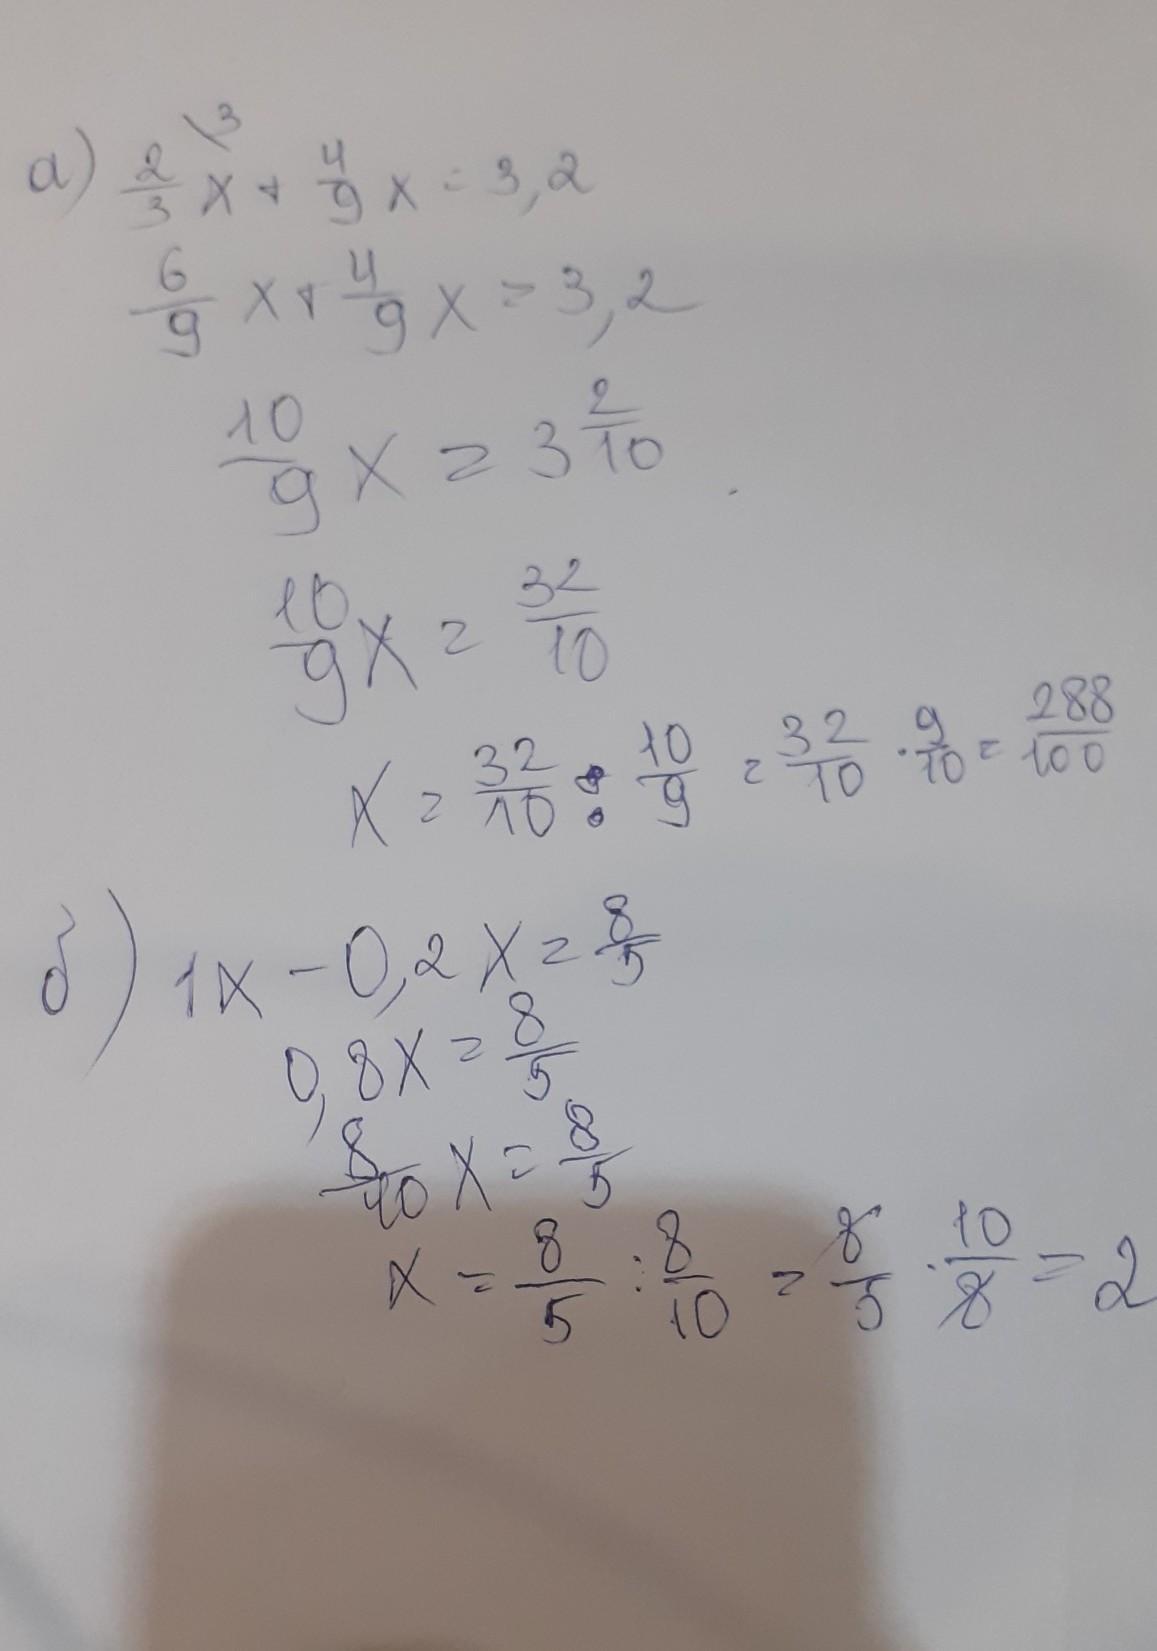 а) 2/3 x \3 + 4/9 x = 3,2
6/9 x + 4/9 x = 3,2
10/9 x = 3 2/10
10/9 x = 32/10
x = 32/10 : 10/9 = 32/10 · 9/10 = 288/100
б) 1x - 0,2x = 8/5
0,8x = 8/5
8/10 x = 8/5
x = 8/5 : 8/10 = 8/5 · 10/8 = 2